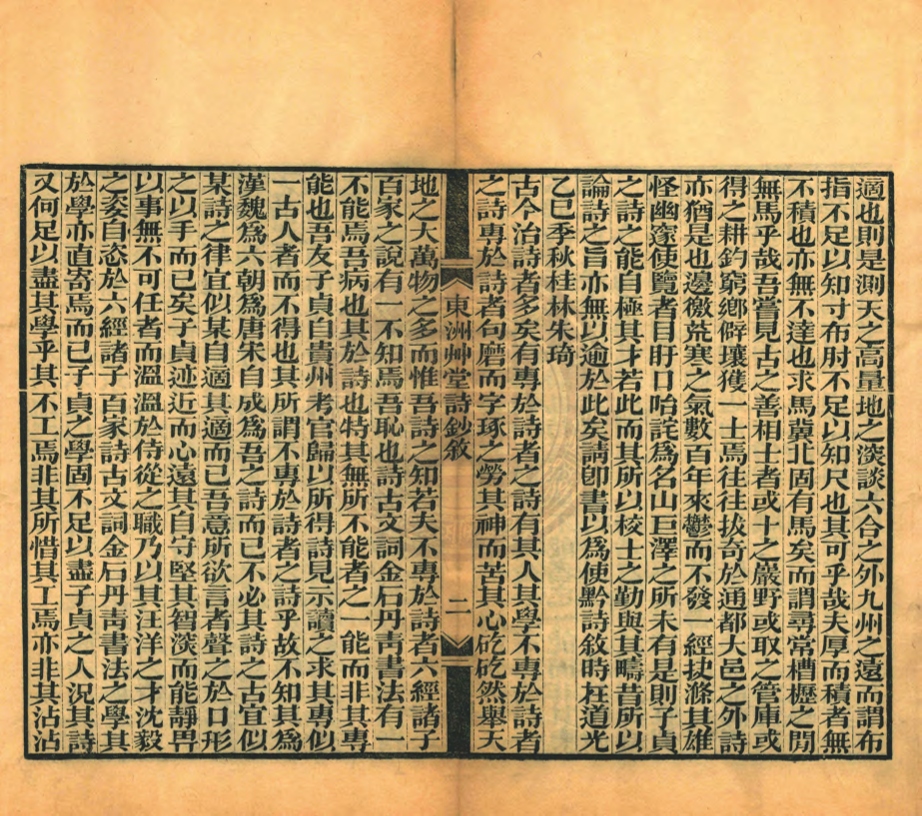 適也則是測天之高量地之深談六合之外九州之遠而謂布
指不足以知寸布肘不足以知尺也其可乎哉夫厚而積者無
不積也亦無不達也求馬冀北固有馬矣而謂尋常槽櫪之閒
無馬乎哉吾嘗見古之善相士者或十之嚴野或取之管庫或
得之耕釣窮鄉僻壤獲一士焉往往拔奇於通都大邑之外詩
亦猶是也邊徼荒寒之氣數百年來鬱而不發一經抉滌其雄
怪幽窔使覽者目盱口咍詫為名山巨澤之所未有是則子貞
之詩之能自極其才若此而其所以校士之勤與其疇昔所以
論詩之旨亦無以逾於此矣請卽書以為使黔詩敘時在道光
乙巳季秋桂林朱琦
古今治詩者多矣有專於詩者之詩有其人其學不專於詩者
之詩專於詩者句磨而字琢之勞其神而苦其心矻矻然舉天
東洲艸堂詩鈔敘
二
地之大萬物之多而惟吾詩之知若夫不專於詩者六經諸子
百家之說有一不知焉吾恥也詩古文詞金石丹靑書法有一
不能焉吾病也其於詩也特其無所不能者之一能而非其專
能也吾友子貞自貴州考官歸以所得詩見示讀之求其專似
一古人者而不得也其所謂不專於詩者之詩乎故不知其為
漢魏為六朝為唐宋自成為吾之詩而已不必其詩之古宜似
某詩之律宜似某自適其適而已吾意所欲言者聲之於口形
之以手而已矣子貞迹近而心遠其自守堅其智深而能靜畏
以事無不可任者而溫溫於侍從之職乃以其汪洋之才沈毅
之姿自恣於六經諸子百家詩古文詞金石丹靑書法之學其
於學亦直寄焉而已子貞之學固不足以盡子貞之人況其詩
又何足以盡其學乎其不工焉非其所惜其工焉亦非其沾沾